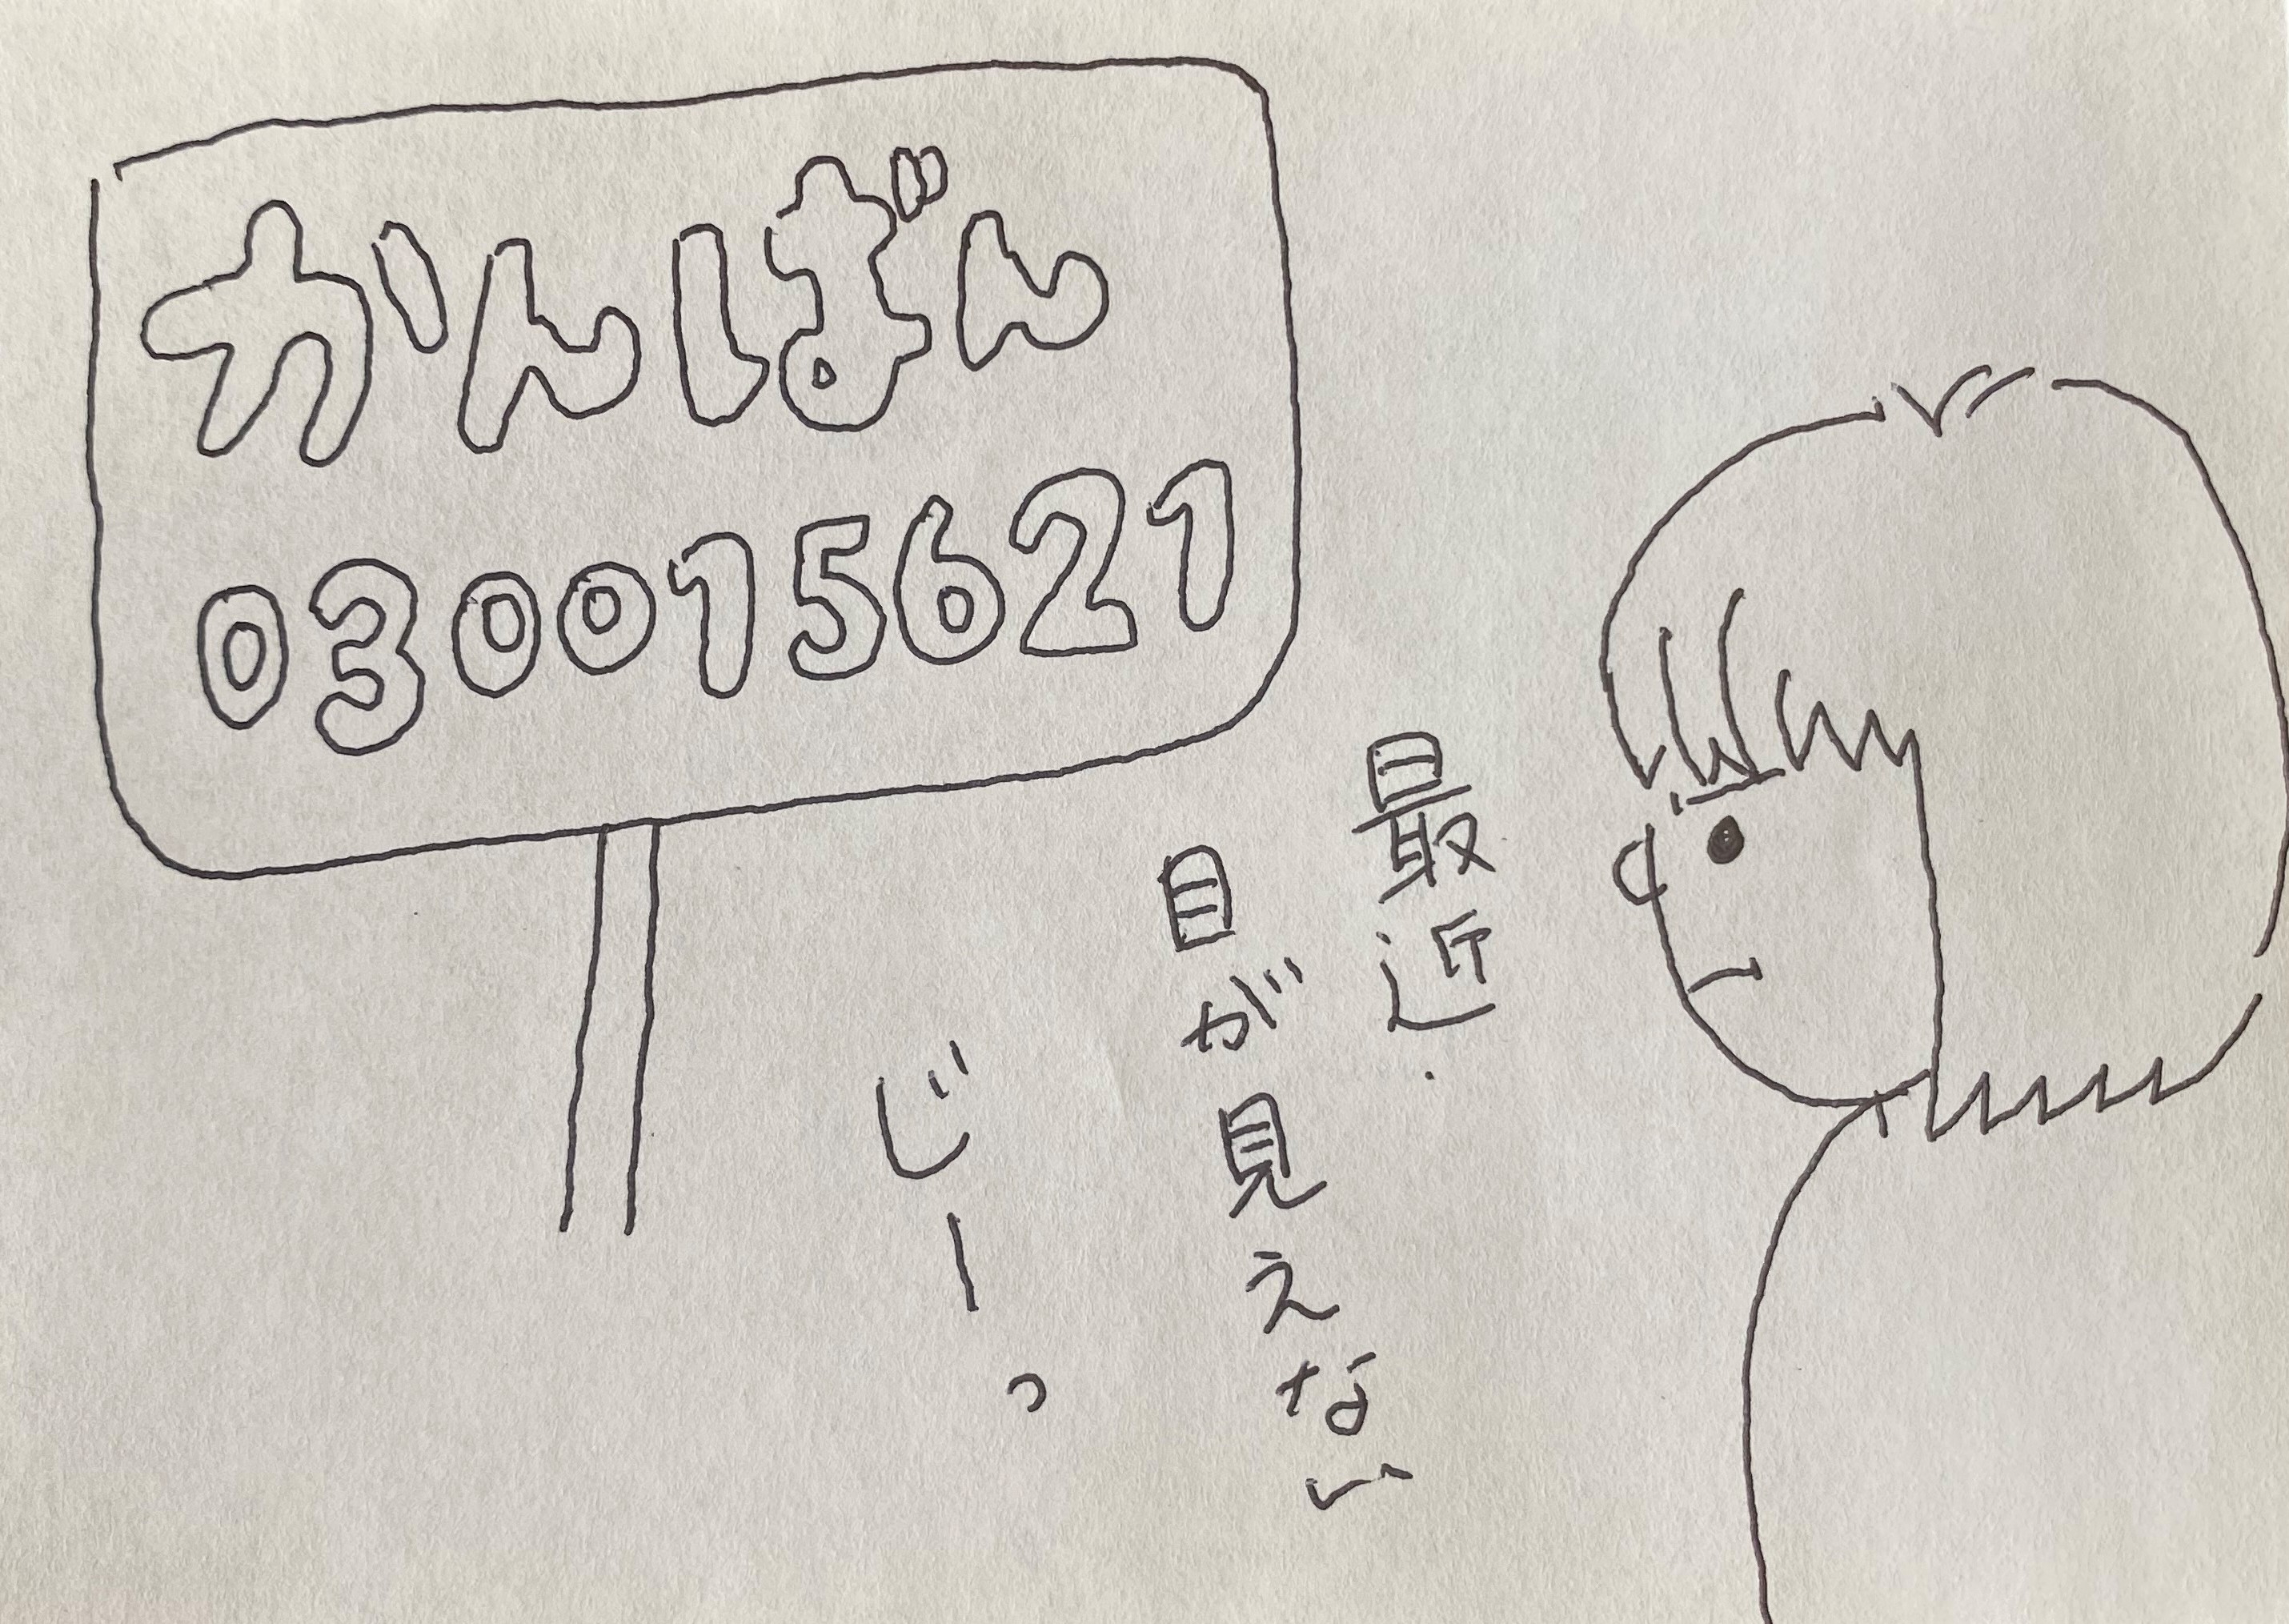 かんばん
030015621
最近
目が見えない
じーっ